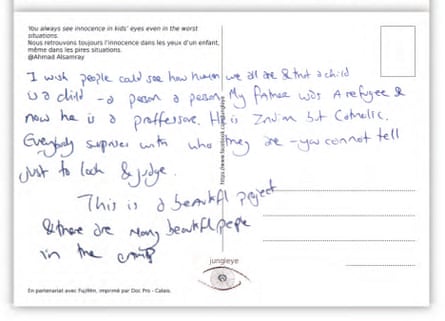 You always see innocence in kids' eyes even in the worst
situations.
Nous retrouvons toujours l'innocence dans les yeux d'un enfant,
même dans les pires situations.
@Ahmad Alsamray
I wish people could see how human we all are & that a child
is a child - a person a person. My father was A refugee &
now he is a proffersore. He is Indian but Catholic.
Everybody suprises with who they are - you cannot tell
just to look & judge.
This is a beautifl project
& there are many beautifl peple
in the camp
jungleye
En partenariat avec Fujifilm, imprimé par Doc Pro - Calais.